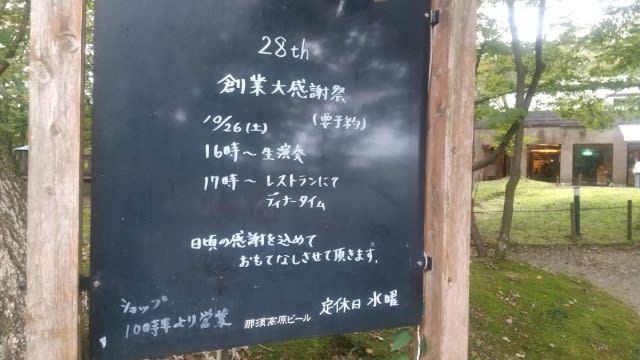 28th
創業大感謝祭
10/26(土) (要予約)
16時〜生演奏
17時〜レストランにて
ディナータイム
日頃の感謝を込めて
おもてなしさせて頂きます。
ショップ
10時半より営業
那須高原ビール
定休日 水曜